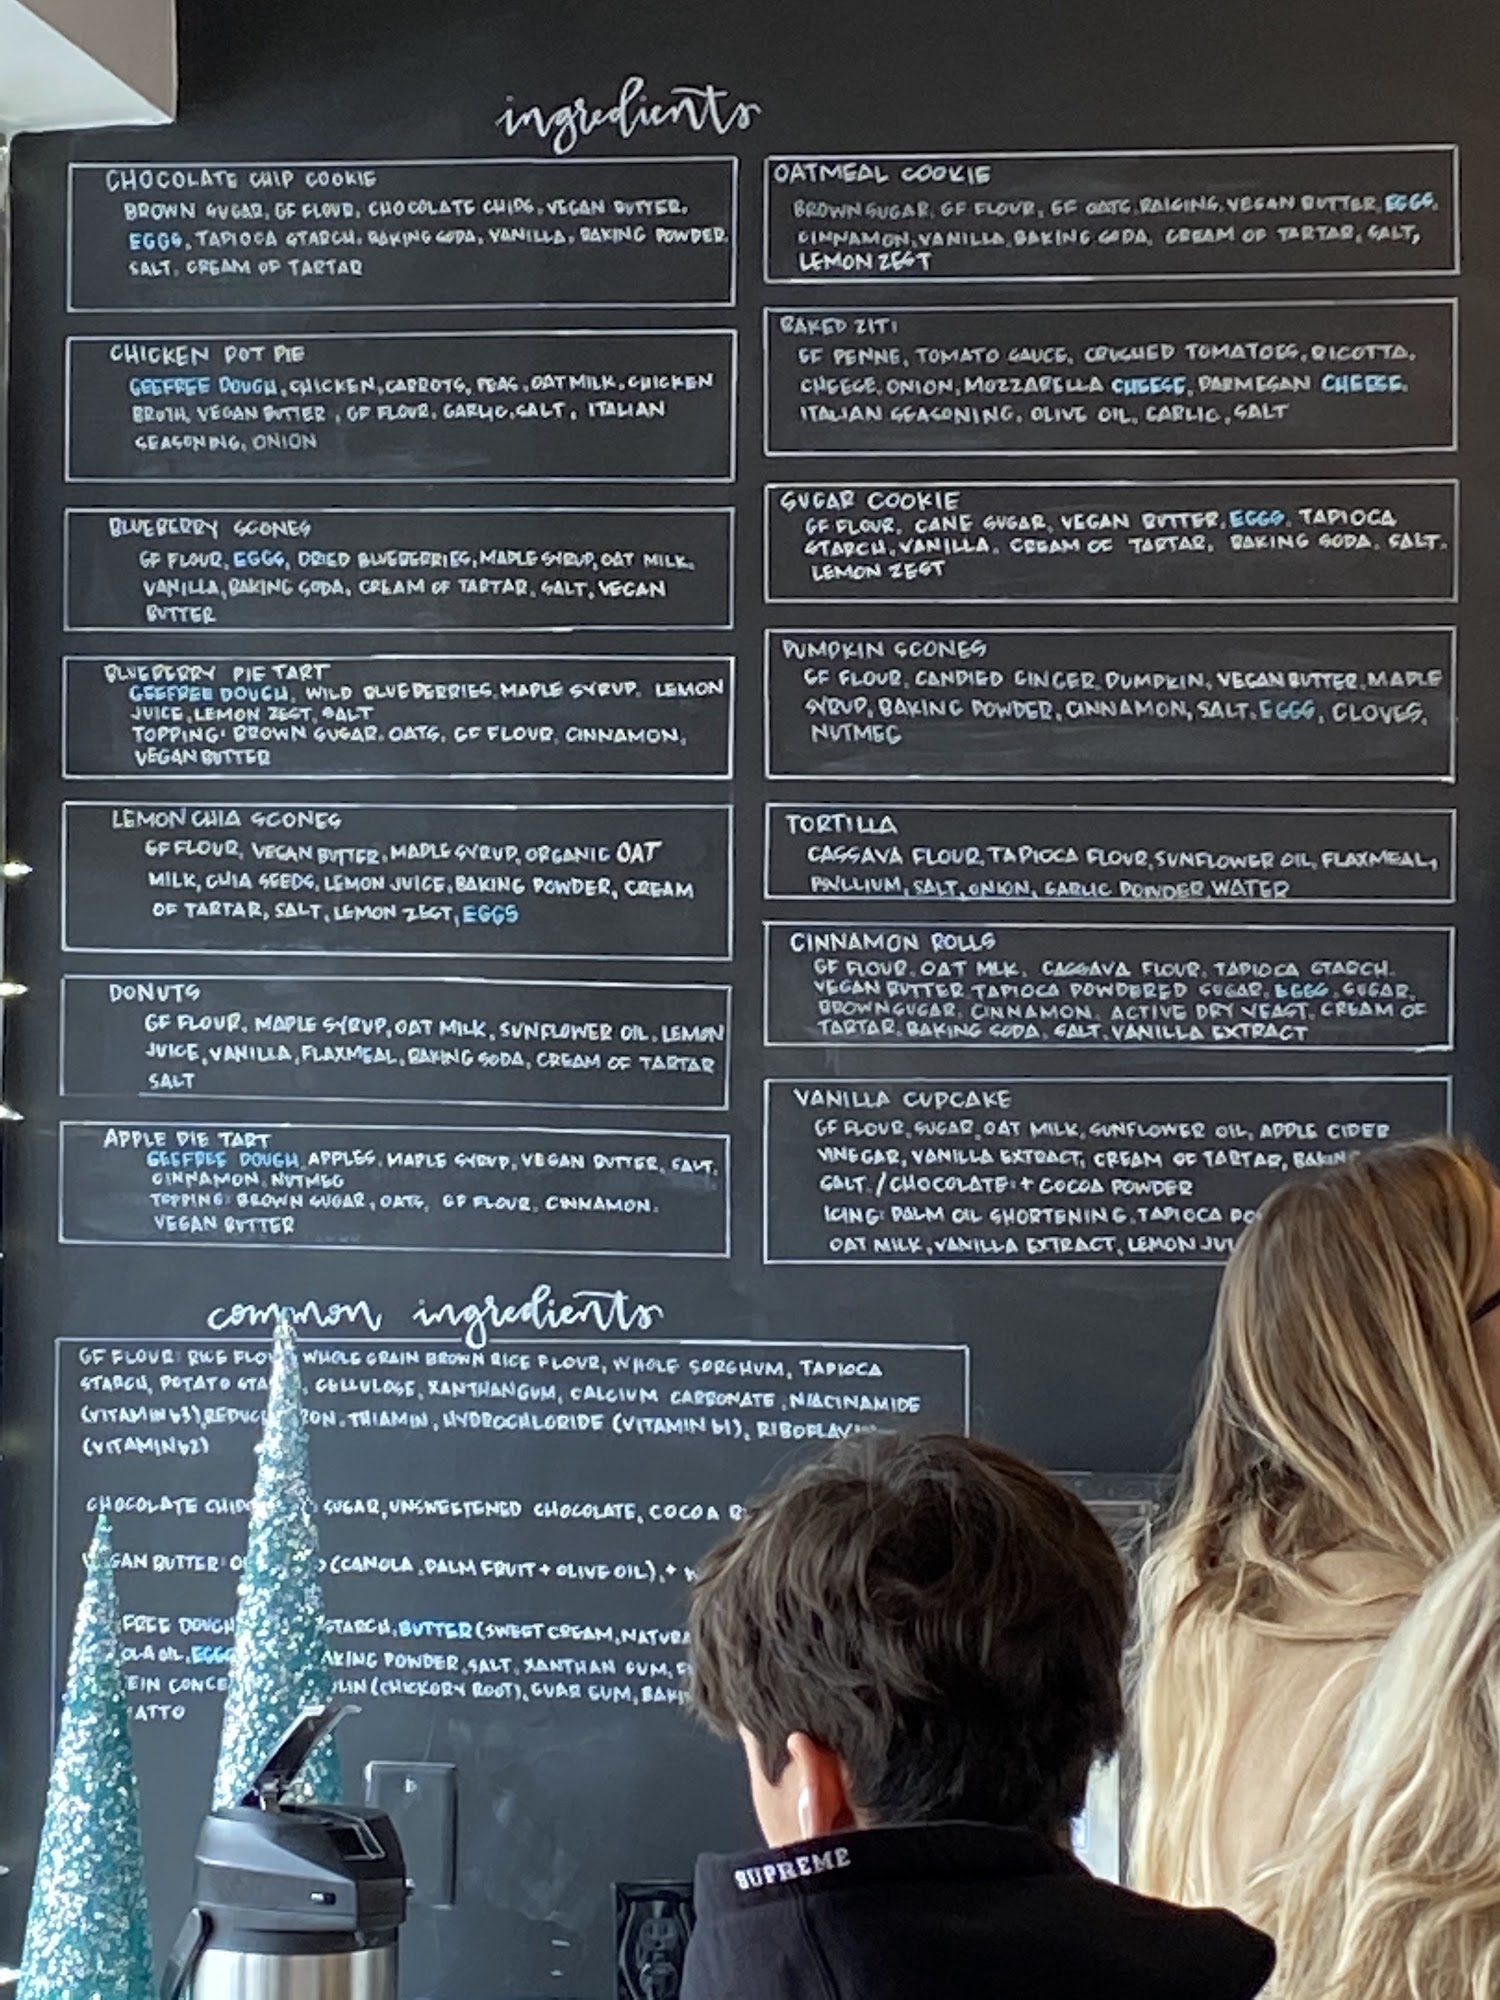 ingredients
CHOCOLATE CHIP COOKIE
BROWN SUGAR, GF FLOUR, CHOCOLATE CHIPS, VEGAN BUTTER,
EGGS, TAPIOCA STARCH, BAKING SODA, VANILLA, BAKING POWDER,
SALT, CREAM OF TARTAR
CHICKEN POT PIE
GEEFREE DOUGH, CHICKEN, CARROTS, PEAS, OATMILK, CHICKEN
BROTH, VEGAN BUTTER, GF FLOUR, GARLIC, SALT, ITALIAN
SEASONING, ONION
BLUEBERRY SCONES
GF FLOUR, EGGS, DRIED BLUEBERRIES, MAPLE SYRUP, OAT MILK,
VANILLA, BAKING SODA, CREAM OF TARTAR, SALT, VEGAN
BUTTER
BLUEBERRY PIE TART
GEEFREE DOUGH, WILD BLUEBERRIES, MAPLE SYRUP, LEMON
JUICE, LEMON ZEST, SALT
TOPPING: BROWN SUGAR, OATS, GF FLOUR, CINNAMON,
VEGAN BUTTER
LEMON CHIA SCONES
GF FLOUR, VEGAN BUTTER, MAPLE SYRUP, ORGANIC OAT
MILK, CHIA SEEDS, LEMON JUICE, BAKING POWDER, CREAM
OF TARTAR, SALT, LEMON ZEST, EGGS
DONUTS
GF FLOUR, MAPLE SYRUP, OAT MILK, SUNFLOWER OIL, LEMON
JUICE, VANILLA, FLAXMEAL, BAKING SODA, CREAM OF TARTAR
SALT
APPLE PIE TART
GEEFREE DOUGH, APPLES, MAPLE SYRUP, VEGAN BUTTER, SALT,
CINNAMON, NUTMEG
TOPPING: BROWN SUGAR, OATS, GF FLOUR, CINNAMON,
VEGAN BUTTER
OATMEAL COOKIE
BROWN SUGAR, GF FLOUR, GF OATS, RAISINS, VEGAN BUTTER, EGGS,
CINNAMON, VANILLA, BAKING SODA, CREAM OF TARTAR, SALT,
LEMON ZEST
BAKED ZITI
GF PENNE, TOMATO SAUCE, CRUSHED TOMATOES, RICOTTA,
CHEESE, ONION, MOZZARELLA CHEESE, PARMESAN CHEESE,
ITALIAN SEASONING, OLIVE OIL, GARLIC, SALT
SUGAR COOKIE
GF FLOUR, CANE SUGAR, VEGAN BUTTER, EGGS, TAPIOCA
STARCH, VANILLA, CREAM OF TARTAR, BAKING SODA, SALT,
LEMON ZEST
PUMPKIN SCONES
GF FLOUR, CANDIED GINGER, PUMPKIN, VEGAN BUTTER, MAPLE
SYRUP, BAKING POWDER, CINNAMON, SALT, EGGS, CLOVES,
NUTMEG
TORTILLA
CASSAVA FLOUR, TAPIOCA FLOUR, SUNFLOWER OIL, FLAXMEAL,
PSYLLIUM, SALT, ONION, GARLIC POWDER, WATER
CINNAMON ROLLS
GF FLOUR, OAT MLK, CASSAVA FLOUR, TAPIOCA STARCH,
VEGAN BUTTER TAPIOCA POWDERED SUGAR, EGGS, SUGAR,
BROWN SUGAR, CINNAMON, ACTIVE DRY YEAST, CREAM OF
TARTAR, BAKING SODA, SALT, VANILLA EXTRACT
VANILLA CUPCAKE
GF FLOUR, SUGAR, OAT MILK, SUNFLOWER OIL, APPLE CIDER
VINEGAR, VANILLA EXTRACT, CREAM OF TARTAR,
SALT. / CHOCOLATE: + COCOA POWDER
ICING: PALM OIL SHORTENING, TAPIOCA
OAT MILK, VANILLA EXTRACT, LEMON
common ingredients
GF FLOUR: RICE WHOLE GRAIN BROWN RICE FLOUR, WHOLE SORGHUM, TAPIOCA
STARCH, POTATO CELLULOSE, XANTHAN GUM, CALCIUM CARBONATE, NIACINAMIDE
(VITAMIN b3), THIAMIN, HYDROCHLORIDE (VITAMIN b1),
(VITAMIN b2)
CHOCOLATE SUGAR, UNSWEETENED CHOCOLATE, COCOA
BUTTER: (CANOLA, PALM FRUIT + OLIVE OIL), +
FREE DOUGH STARCH, BUTTER (SWEET CREAM,
OIL, EGGS POWDER, SALT, XANTHAN GUM,
(CHICKORY ROOT), GUAR GUM,
SUPREME